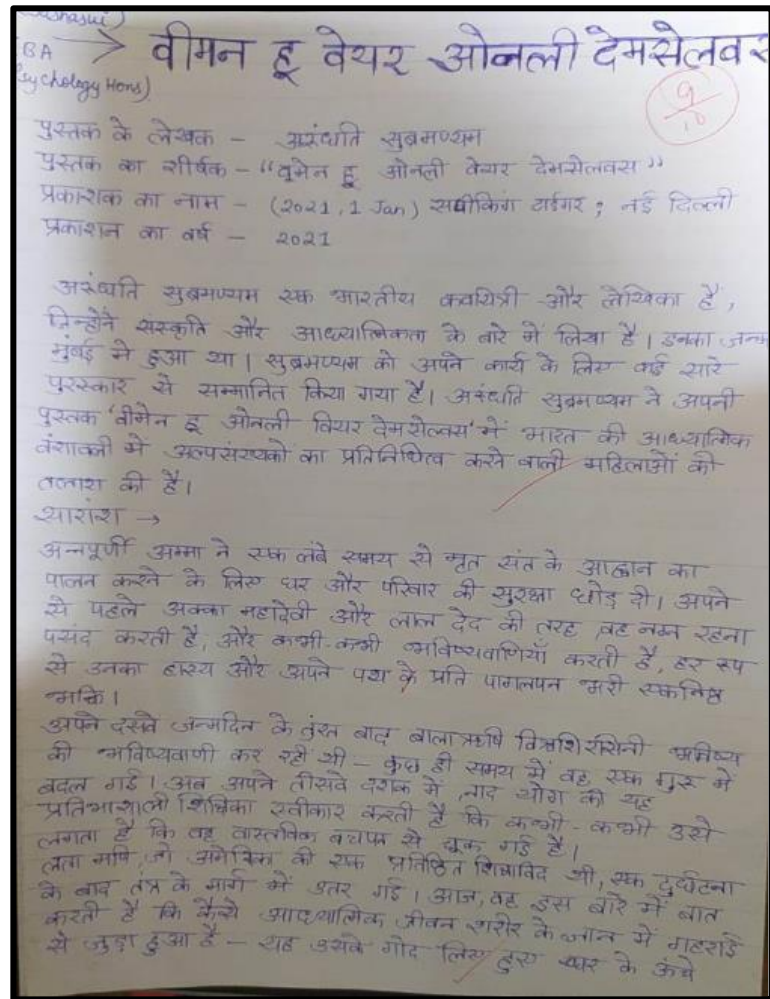 BA
Psychology Hons)
→ वीमन हू वेयर ओनली देमसेलवस
9/10
पुस्तक के लेखक - अरुंधति सुब्रमण्यम
पुस्तक का शीर्षक - “वूमेन हू ओनली वेयर देमसेलवस”
प्रकाशक का नाम - (2021, 1 Jan) स्पीकिंग टाईगर ; नई दिल्ली
प्रकाशन का वर्ष - 2021
अरुंधति सुब्रमण्यम एक भारतीय कवयित्री और लेखिका है,
जिन्होंने संस्कृति और आध्यात्मिकता के बारे में लिखा है। इनका जन्म
मुंबई में हुआ था। सुब्रमण्यम को अपने कार्य के लिए कई सारे
पुरस्कार से सम्मानित किया गया है। अरुंधति सुब्रमण्यम ने अपनी
पुस्तक ‘वीमेन हू ओनली वियर देमसेल्वस’ में भारत की आध्यात्मिक
वंशावली में अल्पसंख्यकों का प्रतिनिधित्व करने वाली महिलाओं की
तलाश की है।
सारांश →
अन्नपूर्णी अम्मा ने एक लंबे समय से मृत संत के आह्वान का
पालन करने के लिए घर और परिवार की सुरक्षा छोड़ दी। अपने
से पहले अक्का महादेवी और लाल देद की तरह, वह नग्न रहना
पसंद करती है, और कभी-कभी भविष्यवाणियाँ करती है, हर रूप
से उनका हास्य और अपने पथ के प्रति पागलपन भरी एकनिष्ठ
भक्ति।
अपने दसवे जन्मदिन के तुरंत बाद बालाऋषि विश्वशिरसिनी भविष्य
की भविष्यवाणी कर रही थी - कुछ ही समय में वह एक गुरु में
बदल गई। अब अपने तीसवे दशक में, नाद योग की यह
प्रतिभाशाली शिक्षिका स्वीकार करती है कि कभी-कभी उसे
लगता है कि वह वास्तविक बचपन से चूक गई है।
लता मणि, जो अमेरिका की एक प्रतिष्ठित शिक्षाविद थी, एक दुर्घटना
के बाद तंत्र के मार्ग में उतर गई। आज, वह इस बारे में बात
करती है कि कैसे आध्यात्मिक जीवन शरीर के ज्ञान में गहराई
से जुड़ा हुआ है - यह उसके गोद लिए हुए के ऊंचे